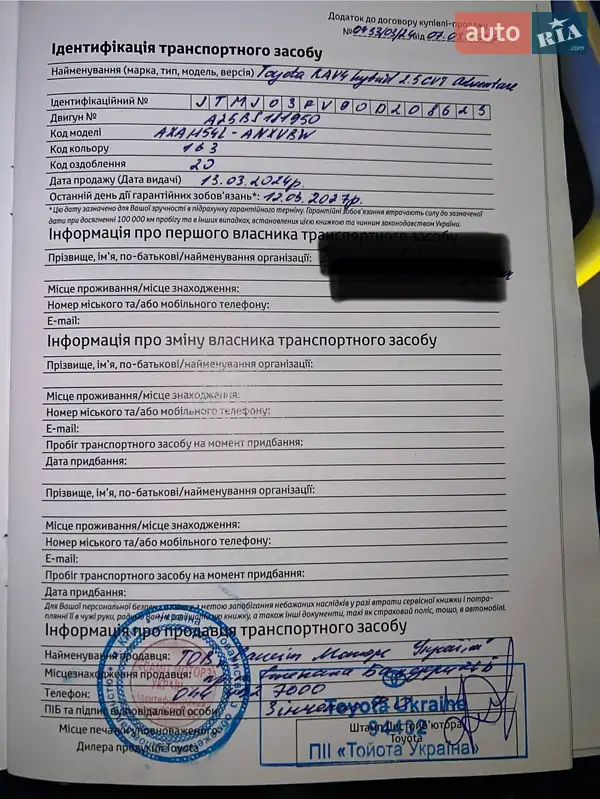 Додаток до договору купівлі-продажу
№0433/03/24 від 07.03
auto RIA.com
Ідентифікація транспортного засобу
Найменування (марка, тип, модель, версія) Toyota RAV4 hybrid 2.5 CVT Adventure
Ідентифікаційний № JTMJ03FV90D208623
Двигун № A25BS181950
Код моделі AXAH54L-ANXVBW
Код кольору 1G3
Код оздоблення 20
Дата продажу (Дата видачі) 13.03.2024р.
Останній день дії гарантійних зобов'язань*: 12.03.2027р.
* Цю дату зазначено для Вашої зручності в підрахунку гарантійного терміну. Гарантійні зобов'язання втрачають силу до зазначеної
дати при досягненні 100 000 км пробігу та в інших випадках, встановлених цією книжкою та чинним законодавством України.
Інформація про першого власника транспортного засобу
Прізвище, ім'я, по-батькові/найменування організації:
Місце проживання/місце знаходження:
Номер міського та/або мобільного телефону:
E-mail:
Інформація про зміну власника транспортного засобу
Прізвище, ім'я, по-батькові/найменування організації:
Місце проживання/місце знаходження:
Номер міського та/або мобільного телефону:
E-mail:
Пробіг транспортного засобу на момент придбання:
Дата придбання:
Прізвище, ім'я, по-батькові/найменування організації:
Місце проживання/місце знаходження:
Номер міського та/або мобільного телефону:
E-mail:
Пробіг транспортного засобу на момент придбання:
Дата придбання:
Для Вашої персональної безпеки з метою запобігання небажаних наслідків у разі втрати сервісної книжки і потрап-
лянні її в чужі руки, радимо книжку, а також інші документи, такі як страховий поліс, тощо, в автомобілі.
Інформація про продавця транспортного засобу
Найменування продавця: ТОВ Україна"
Місцезнаходження продавця: Степана Бандери
Телефон: 044 7000
ПІБ та підпис відповідальної особи
Місце печатки уповноваженого
Дилера продукції Toyota
Toyota Ukraine
94102
Штамп дистриб'ютора
Toyota
ПІІ «Тойота Україна»